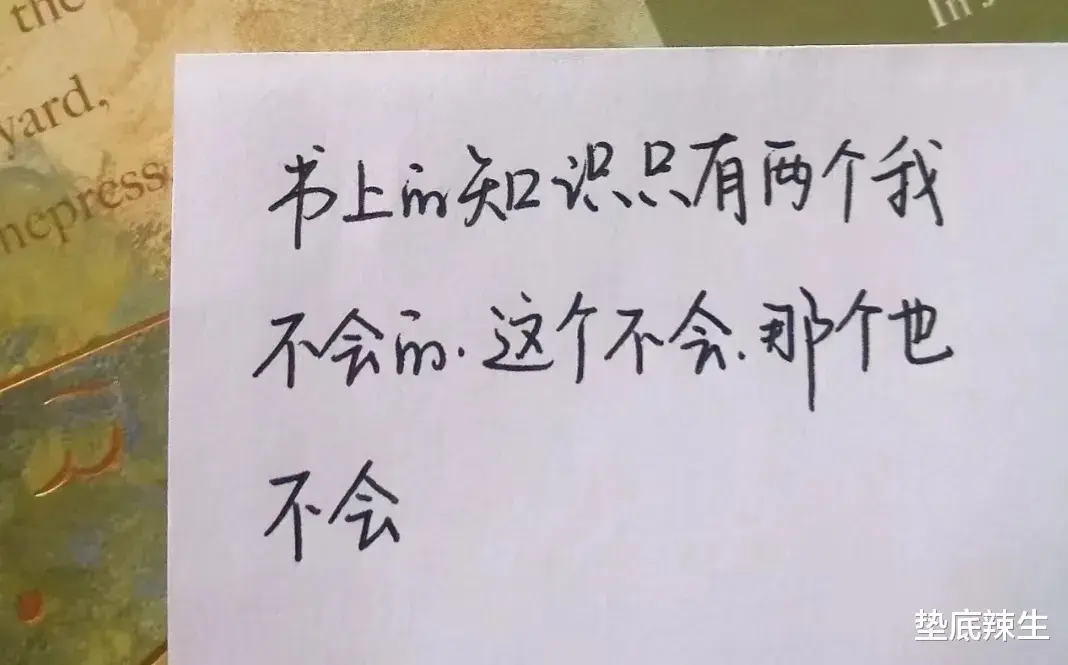 the
yard,
mepress
In
书上的知识只有两个我
不会的.这个不会.那个也
不会
垫底辣生